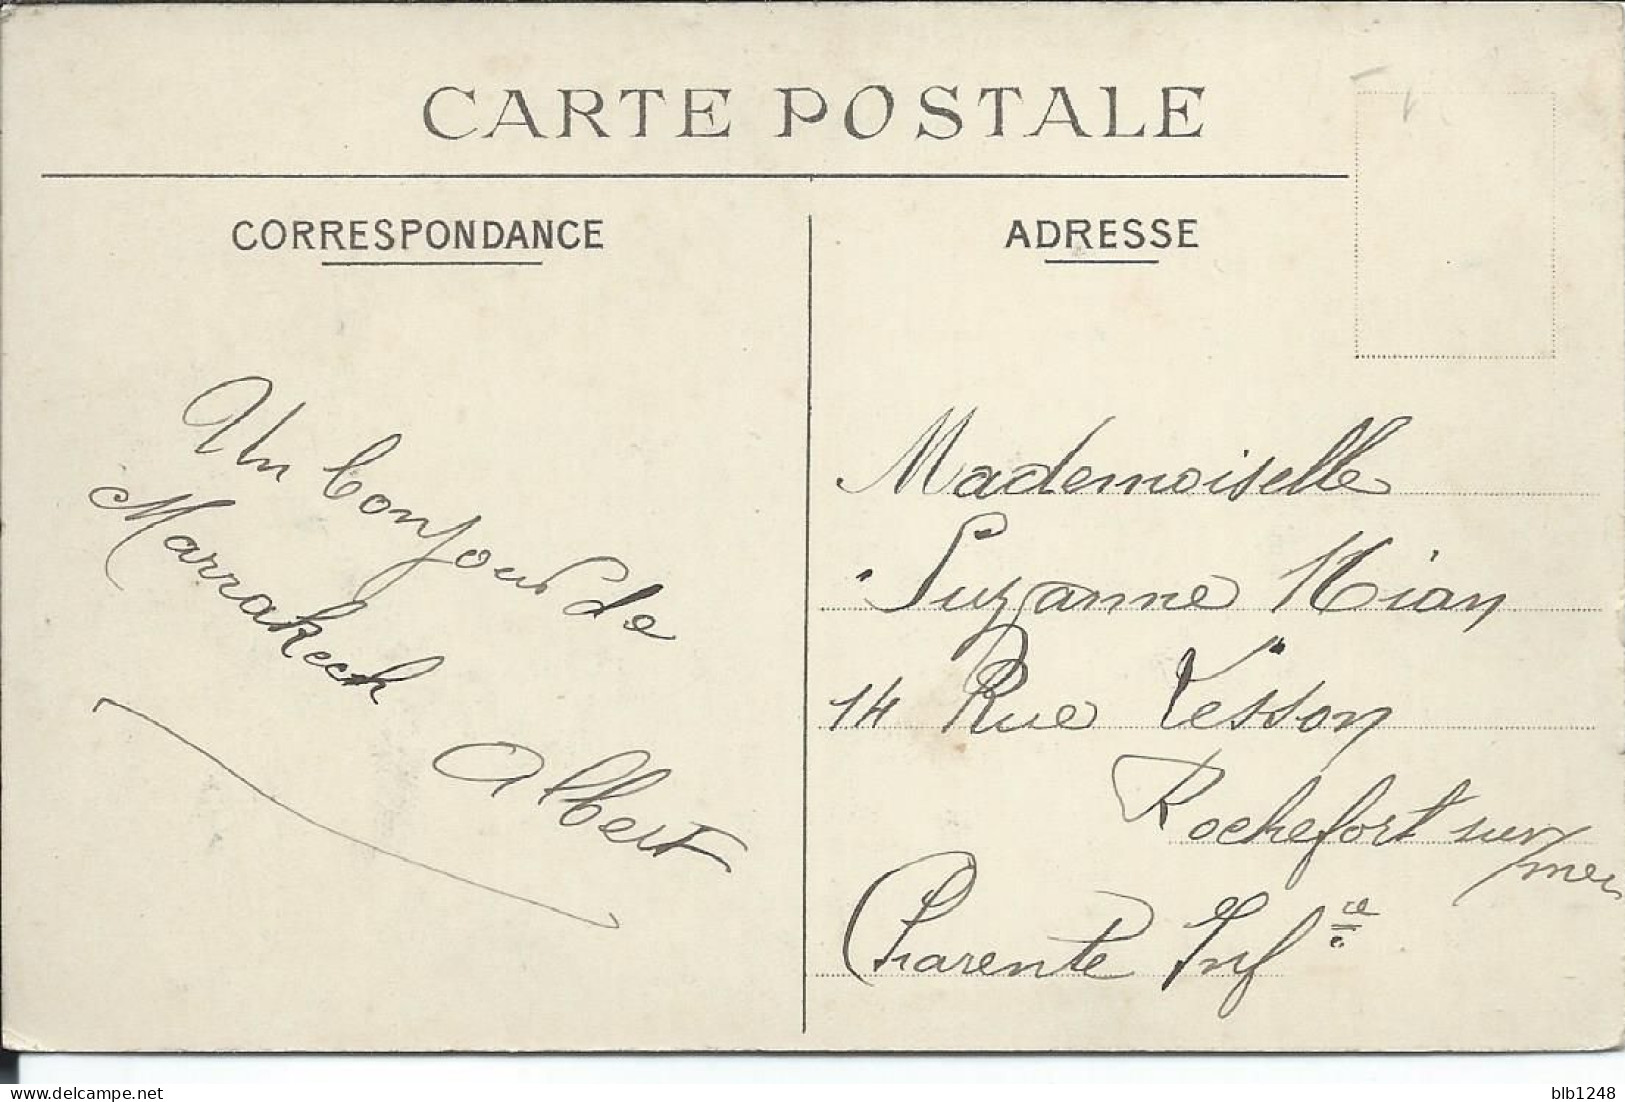 CARTE POSTALE
CORRESPONDANCE
Un bonjour de
Marrakech
Albert
ADRESSE
Mademoiselle
Suzanne
14 Rue Tesson
Rochefort sur
mer
Charente Infre
delcampe.net
blb1248